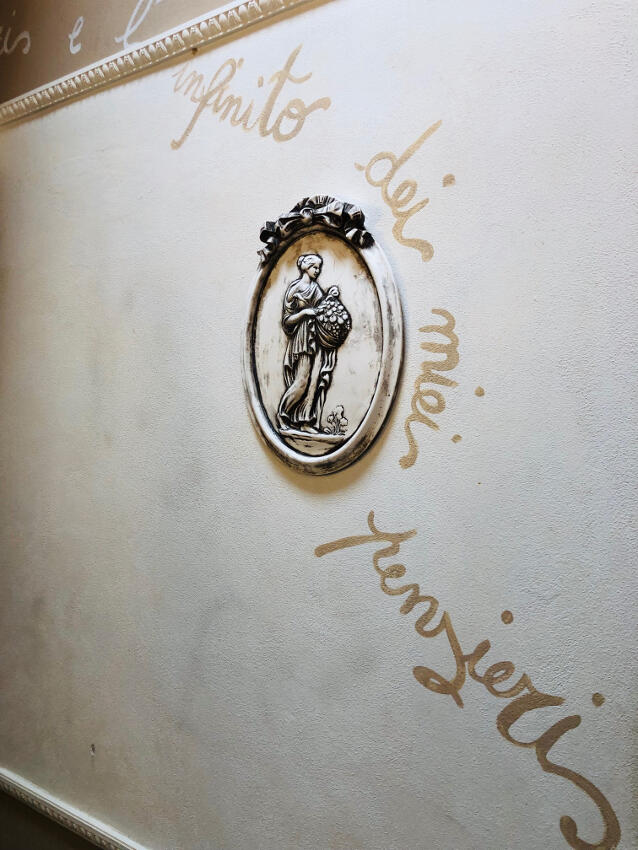 e l'
infinito
dei
miei
pensieri